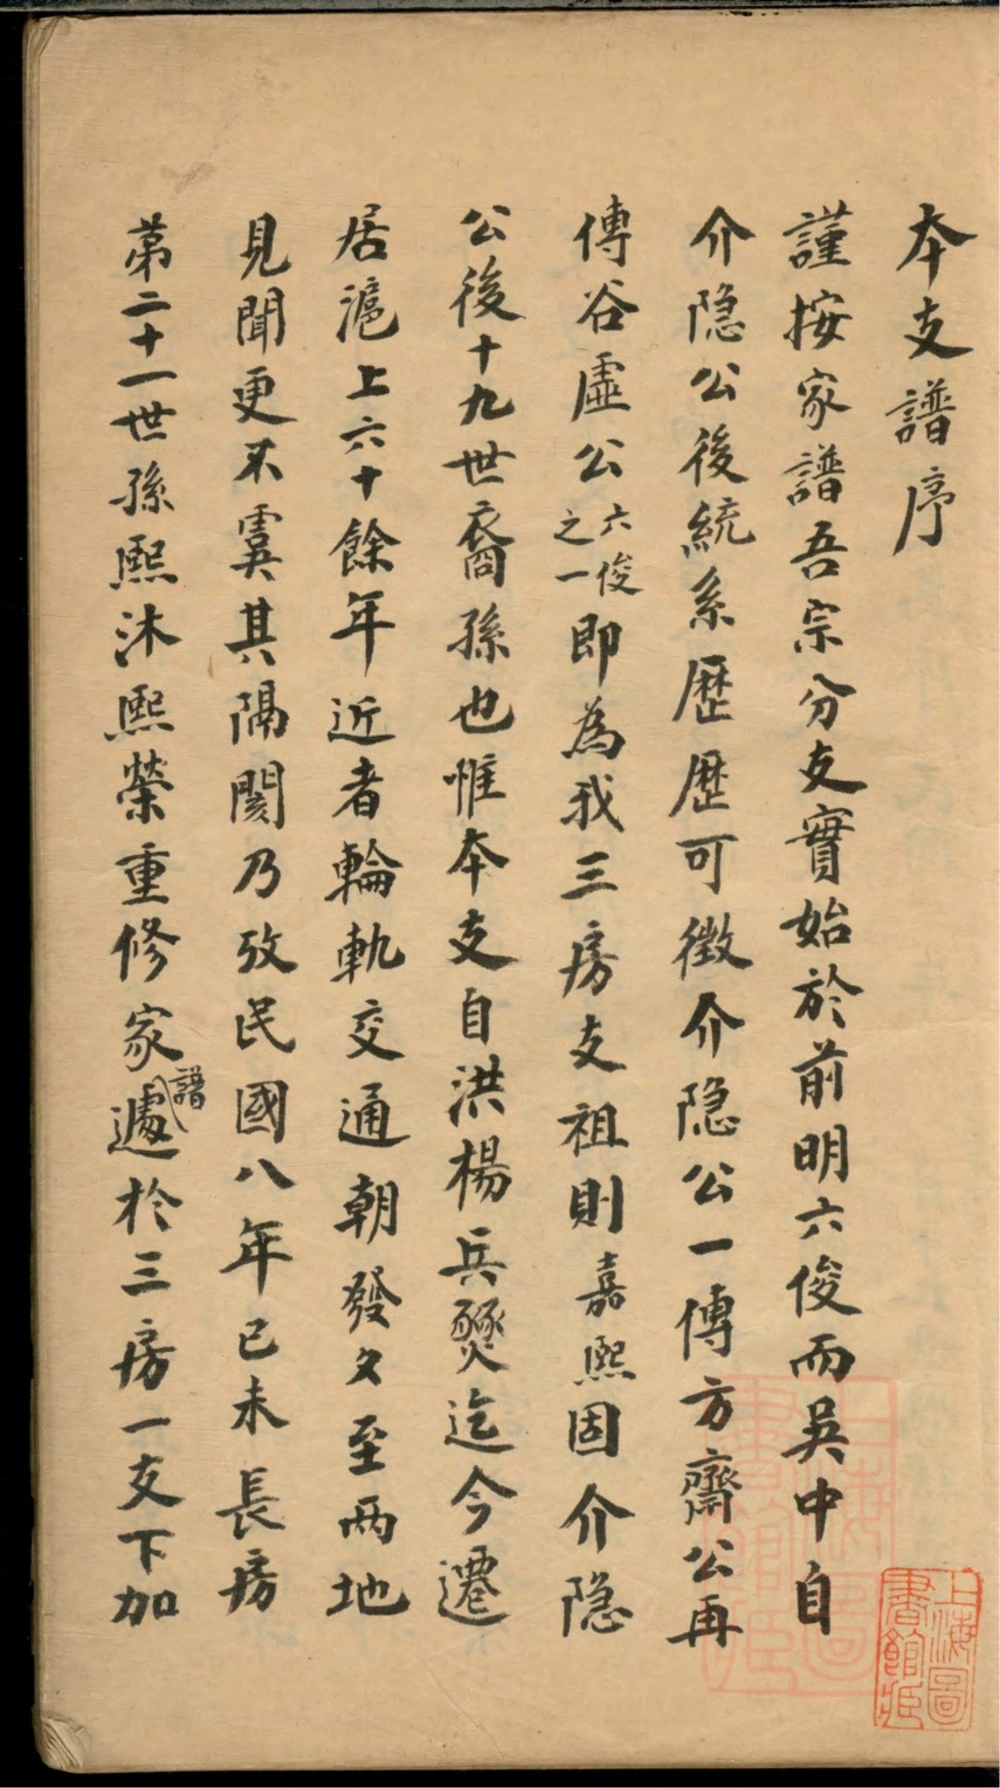 本支譜序
謹按家譜吾宗分支實始於前明六俊而吳中自
介隐公後統系歷歷可徵介隐公一傳方齋公再
傳谷虛公六俊之一即為我三房支祖則嘉熙固介隐
公後十九世裔孫也惟本支自洪楊兵燹迄今遷
居滬上六十餘年近者輪軌交通朝發夕至兩地
見聞更不虞其隔閡乃攷民國八年己未長房
第二十一世孫熙沐熙榮重修家譜遽於三房一支下加
上海圖書館藏